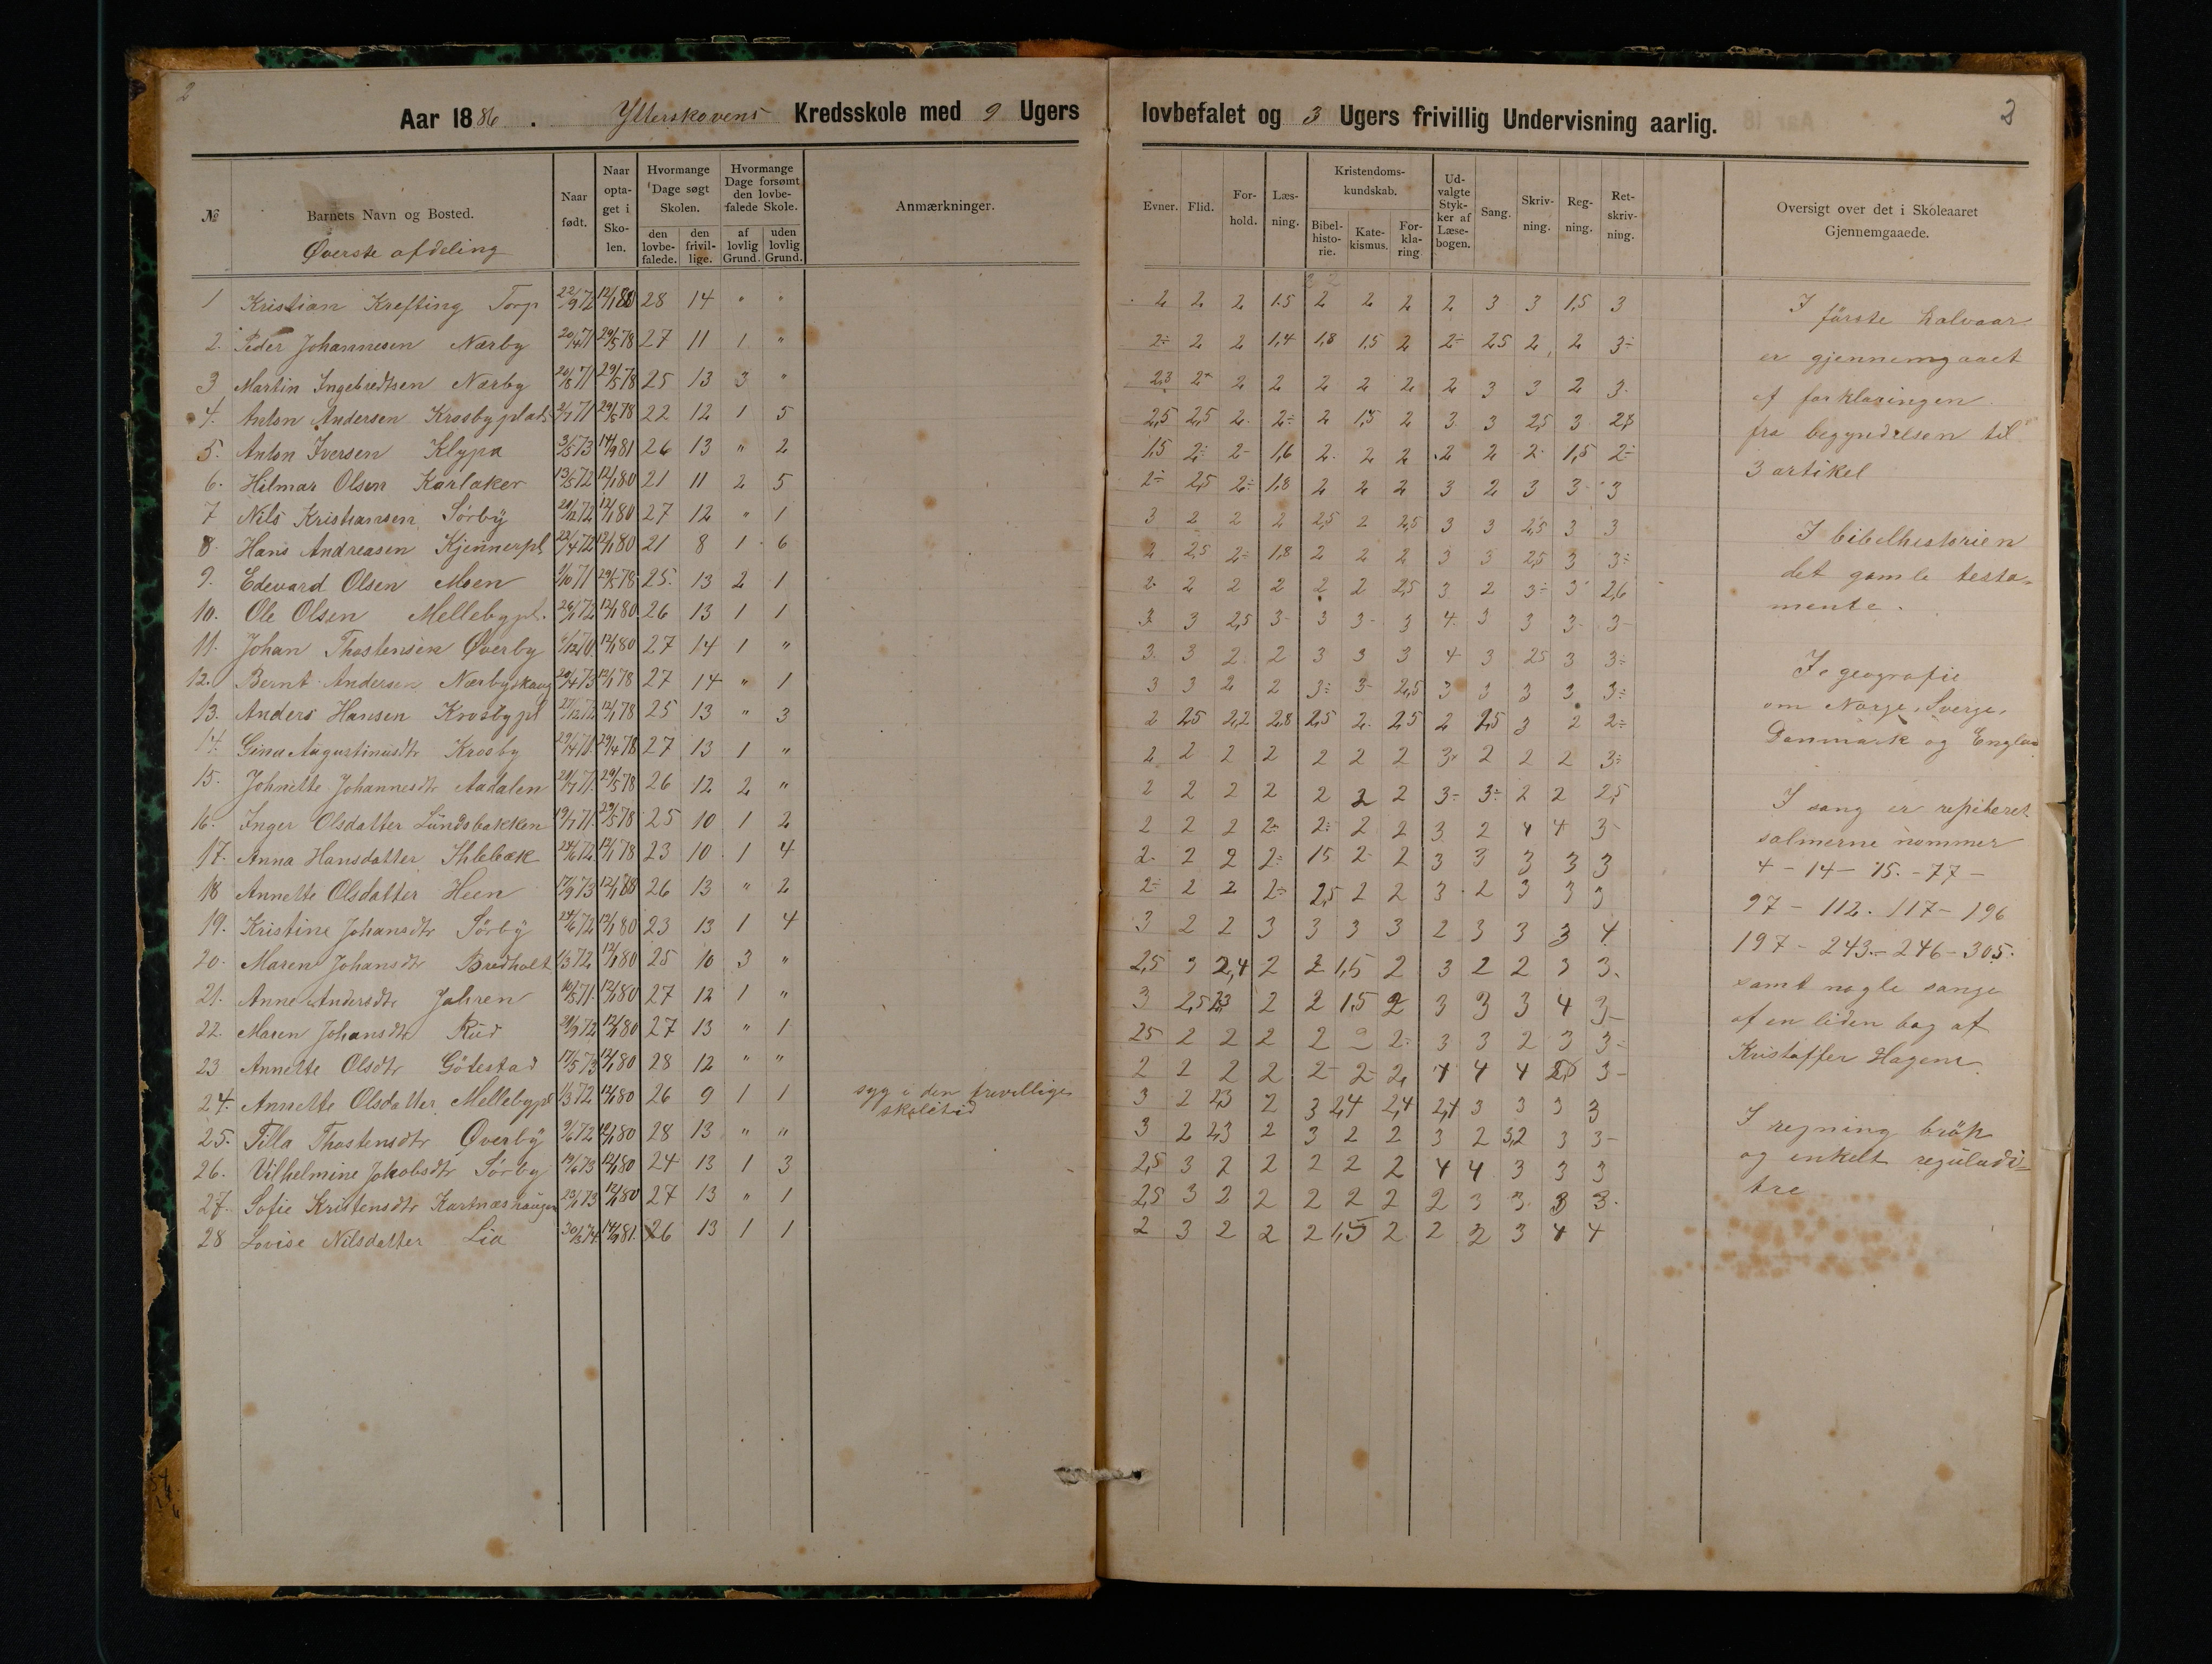 2
Aar 1886. Ytterskovens Kredsskole med 9 Ugers lovbefalet og 3 Ugers frivillig Undervisning aarlig. 2
№ Barnets Navn og Bosted. Naar født. Naar optaget i Skolen. Hvormange Dage søgt Skolen. den lovbefalede. den frivillige. Hvormange Dage forsømt den lovbefalede Skole. af lovlig Grund. uden lovlig Grund. Anmærkninger.
Øverste afdeling
1 Kristian Krefting Torp 22/9 72 12/1 80 28 14 " "
2. Peder Johannesen Nærby 20/4 71 29/5 78 27 11 1 "
3 Martin Ingebredtsen Nærby 20/8 71 29/5 78 25 13 3 "
4. Anton Andersen Krosbyplads 2/7 71 29/5 78 22 12 1 5
5. Anton Iversen Klypa 3/5 73 14/9 81 26 13 " 2
6. Hilmar Olsen Karlaker 13/5 72 12/1 80 21 11 2 5
7 Nils Kristiansen Sörby 20/12 72 12/1 80 27 12 " 1
8. Hans Andreasen Kjennerpl 22/4 72 12/1 80 21 8 1 6
9. Edevard Olsen Moen 9/10 71 29/5 78 25. 13 2 1
10. Ole Olsen Mellebypl. 26/1 72 12/1 80 26 13 1 1
11. Johan Thostensen Øverby 12 70 12/1 80 27 14 1 "
12. Bernt Andersen Nærbyskaug 20/4 73 12/1 78 27 14 " 1
13. Anders Hansen Krosbypl 27/12 72 12/1 78 25 13 " 3
14. Gina Augustinusdtr Krosby 29/4 71 29/4 78 27 13 1 "
15. Johnette Johannesdtr Aadalen 20/7 71 29/5 78 26 12 2 "
16. Inger Olsdatter Lundsbakken 19/7 71 29/5 78 25 10 1 2
17. Anna Hansdatter 24/6 72 12/1 78 23 10 1 4
18 Annette Olsdatter Heen 17/9 73 12/1 80 26 13 " 2
19. Kristine Johansdtr Sörby 24/6 72 12/1 80 23 13 1 4
20. Maren Johansdtr Bredholt 1/3 72 12/1 80 25 10 3 "
21. Anne Andersdtr Jahren 10/5 71 12/1 80 27 12 1 "
22. Maren Johansdtr Rud 29/9 72 12/1 80 27 13 " 1
23 Annette Olsdtr Götestad 17/5 73 12/1 80 28 12 " "
24. Annette Olsdatter Mellebypl 1/3 72 12/1 80 26 9 1 1 syg i den frevillige skoletid
25. Tilla Thostensdtr Øverby 9/6 72 12/1 80 28 13 " "
26. Vilhelmine Jakobsdtr Sörby 19/6 73 12/1 80 24 13 1 3
27. Sofie Kristensdtr Kartnæshaugen 23/1 73 12/1 80 27 13 " 1
28 Lovise Nilsdatter Lia 30/3 74 14/9 81. 26 13 1 1
Evner. Flid. Forhold. Læsning. Kristendomskundskab. Bibelhistorie. Katekismus. Forklaring Udvalgte Stykker af Læsebogen. Sang. Skrivning. Regning. Retskrivning.
2 2 2 1.5 2 2 2 2 3 3 1,5 3
2÷ 2 2 1,4 1,8 1,5 2 2÷ 2,5 2 2 3÷
2,3 2+ 2 2 2 2 2 2 3 3 2 3
2,5 2,5 2 2÷ 2 1,5 2 3 3 2,5 3 2,8
1,5 2÷ 2- 1,6 2 2 2 2 2 2 1,5 2÷
2÷ 2,5 2÷ 1,8 2 2 2 3 2 3 3 3
3 2 2 2 2,5 2 2,5 3 3 2,5 3 3
2 2,5 2÷ 1,8 2 2 2 3 3 2,5 3 3÷
2 2 2 2 2 2 2,5 3 2 3÷ 3 2,6
3 3 2,5 3- 3 3- 3 4 3 3 3- 3-
3. 3 2 2 3 3 3 4 3 2,5 3 3÷
3 3 2 2 3÷ 3- 2,5 3 3 3 3 3÷
2 2,5 2,2 2,8 2,5 2 2,5 2 2,5 3 2 2÷
2 2 2 2 2 2 2 3 2 2 2 3÷
2 2 2 2 2 2 2 3÷ 3÷ 2 2 2,5
2 2 2 2÷ 2÷ 2 2 3 2 4 4 3-
2 2 2 2÷ 1,5 2 2 3 3 3 3 3
2÷ 2 2 2÷ 2,5 2 2 3 2 3 3 3
3 2 2 3 3 3 3 2 3 3 3 4
2,5 3 2,4 2 2 1,5 2 3 2 2 3 3
3 2,5 2,3 2 2 1,5 2 3 3 3 4 3-
2,5 2 2 2 2 2 2÷ 3 3 2 3 3-
2 2 2 2 2- 2- 2 4 4 4 2,5 3-
3 2 2,3 2 3 2,4 2,4 2,4 3 3 3 3
3 2 2,3 2 3 2 2 3 2 3,2 3 3-
2,5 3 2 2 2 2 2 4 4 3 3 3
2,5 3 2 2 2 2 2 2 3 3 3 3
2 3 2 2 2 1,5 2 2 2 3 4 4
Oversigt over det i Skoleaaret Gjennemgaaede.
I første halvaar
er gjennemgaaet
af forklaringen
fra begyndelsen til
3 artikel
I bibelhistorien
det gamle testa-
mente.
I geografie
om Norge, Sverge,
Danmark og Englan
I sang er repiteret
salmerne nommer
4 - 14 - 15. - 77 -
97 - 112. 117 - 196
197 - 243. - 246 - 305.
samt nogle sange
af en liden bog af
Kristoffer Hagene
I regning brök
og enkelt reguladi-
tre